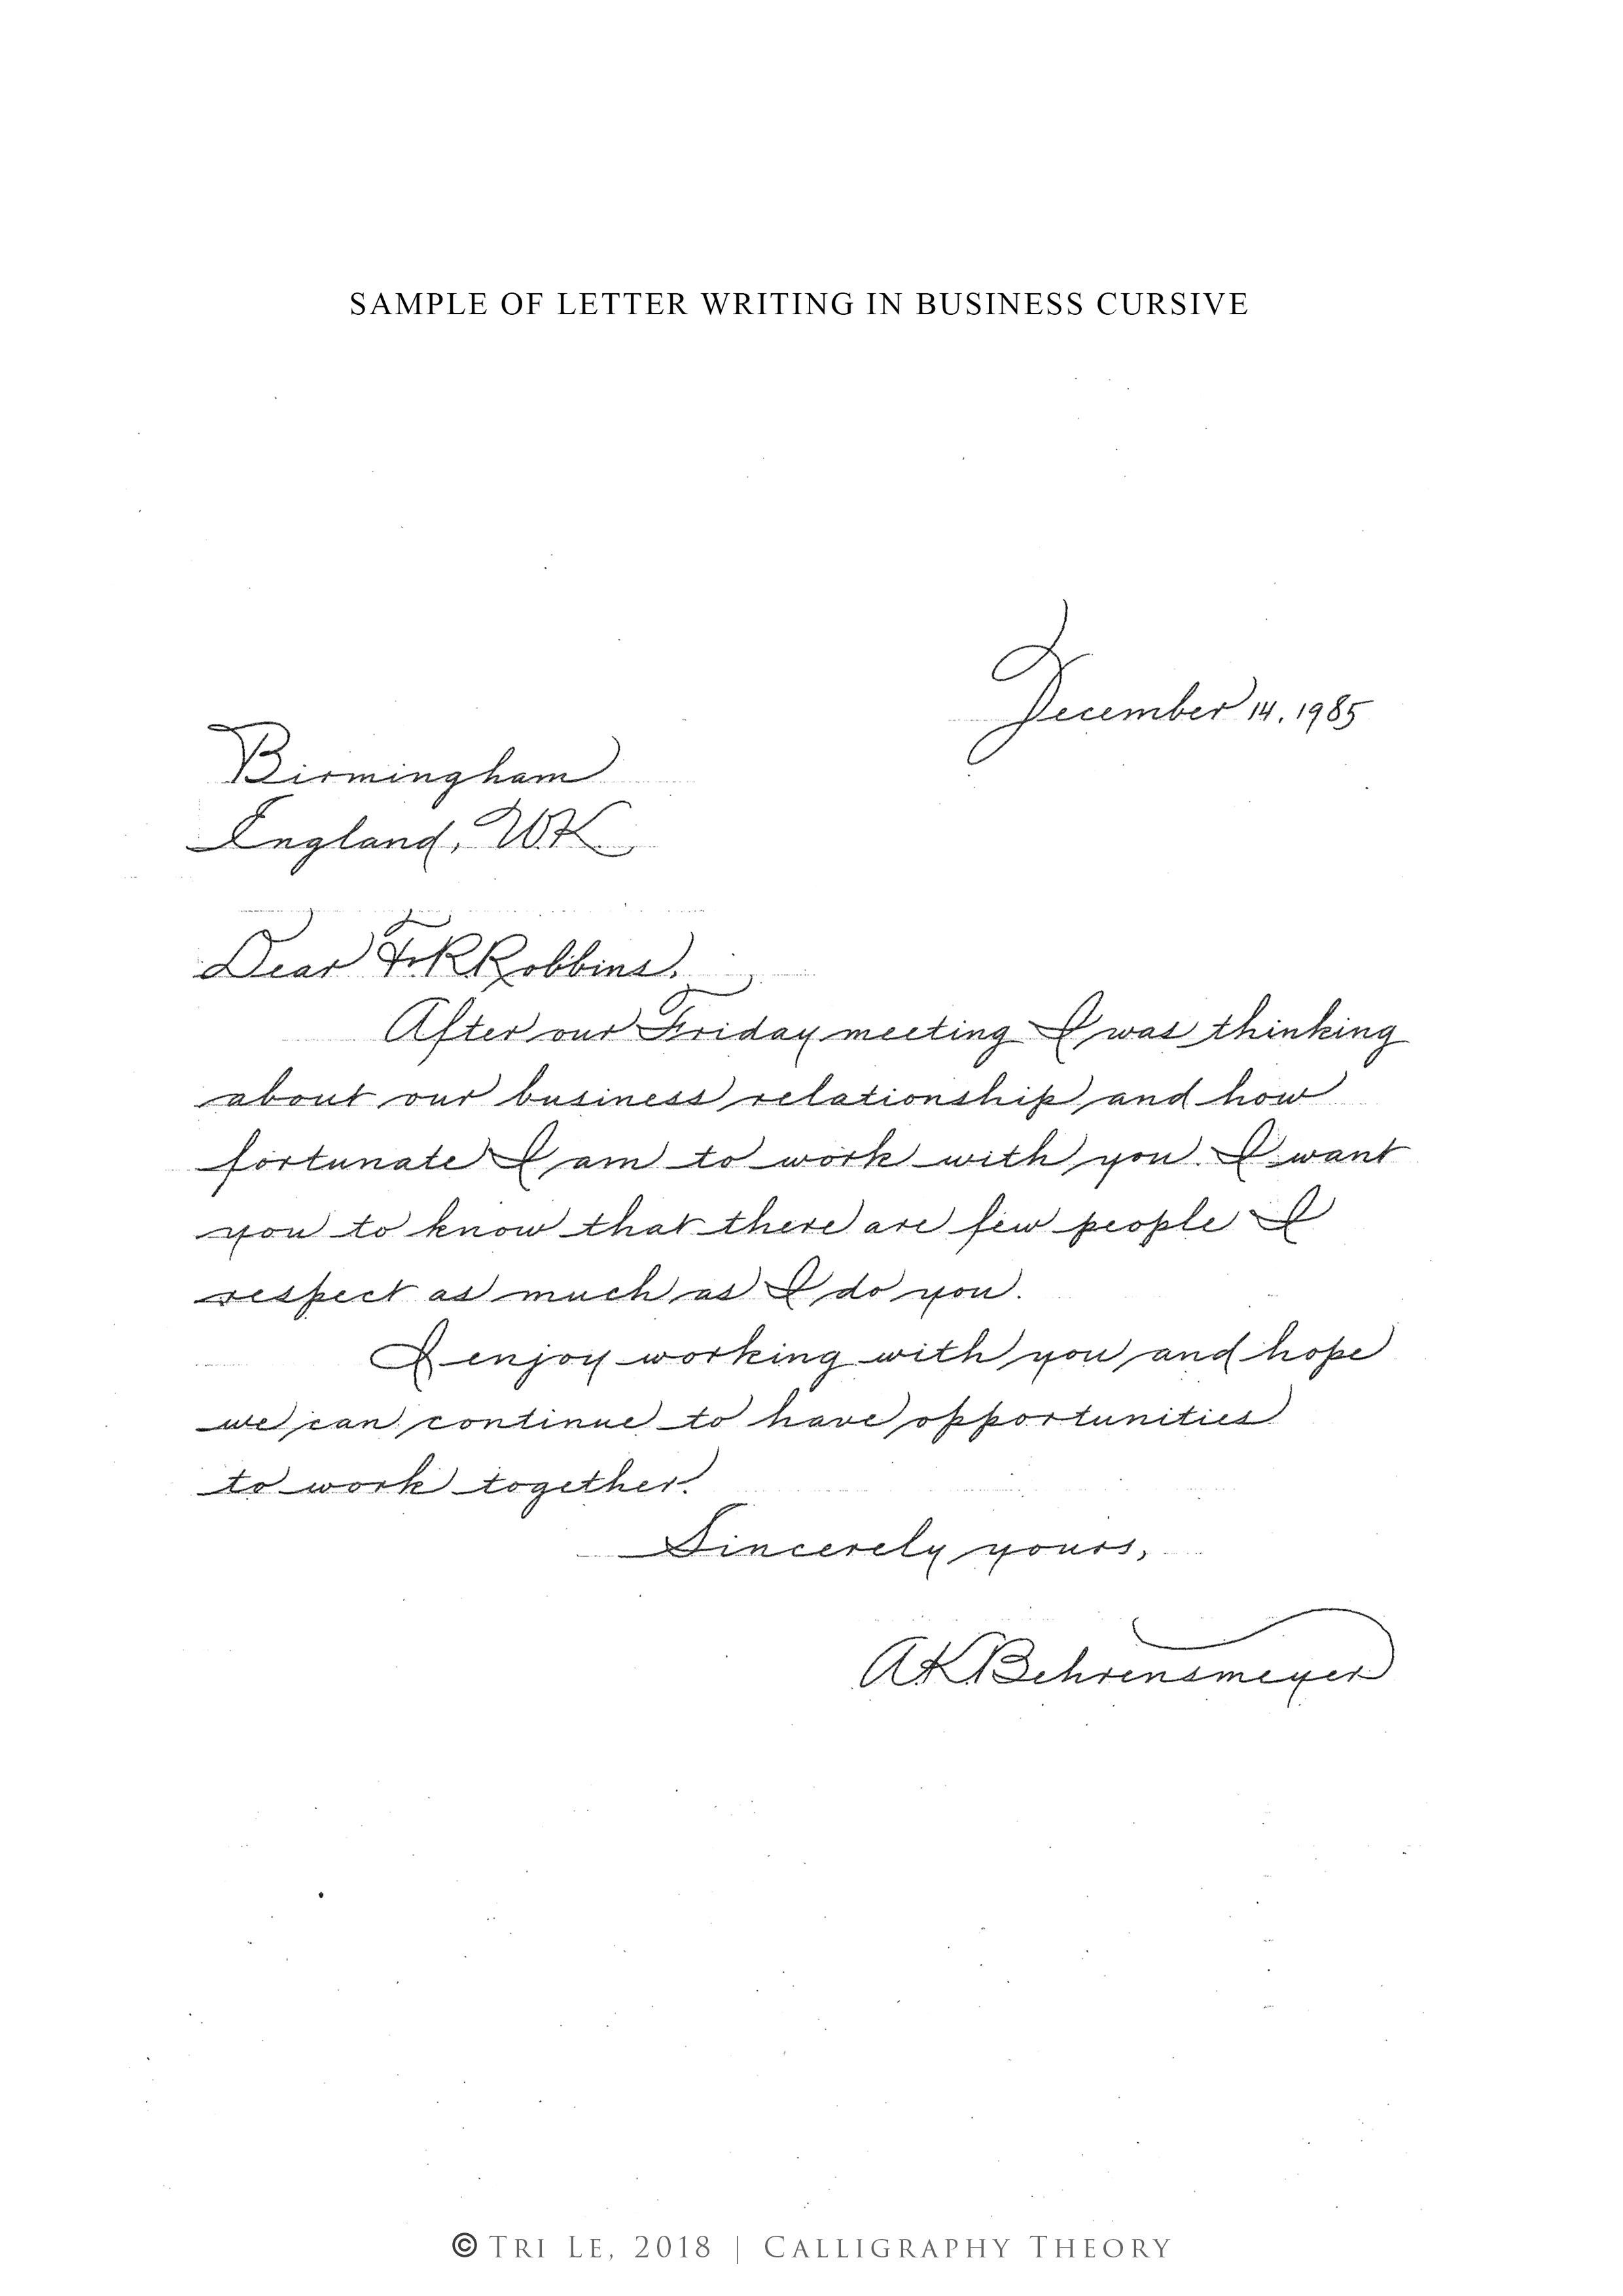 SAMPLE OF LETTER WRITING IN BUSINESS CURSIVE
December 14, 1985
Birmingham
England, UK
Dear Robbins,
After our Friday meeting I was thinking
about our business relationship and how
fortunate I am to work with you. I want
you to know that there are few people I
respect as much as I do you.
I enjoy working with you and hope
we can continue to have opportunities
to work together.
Sincerely yours,
AKBehrensmeyer
© TRI LE, 2018 | CALLIGRAPHY THEORY